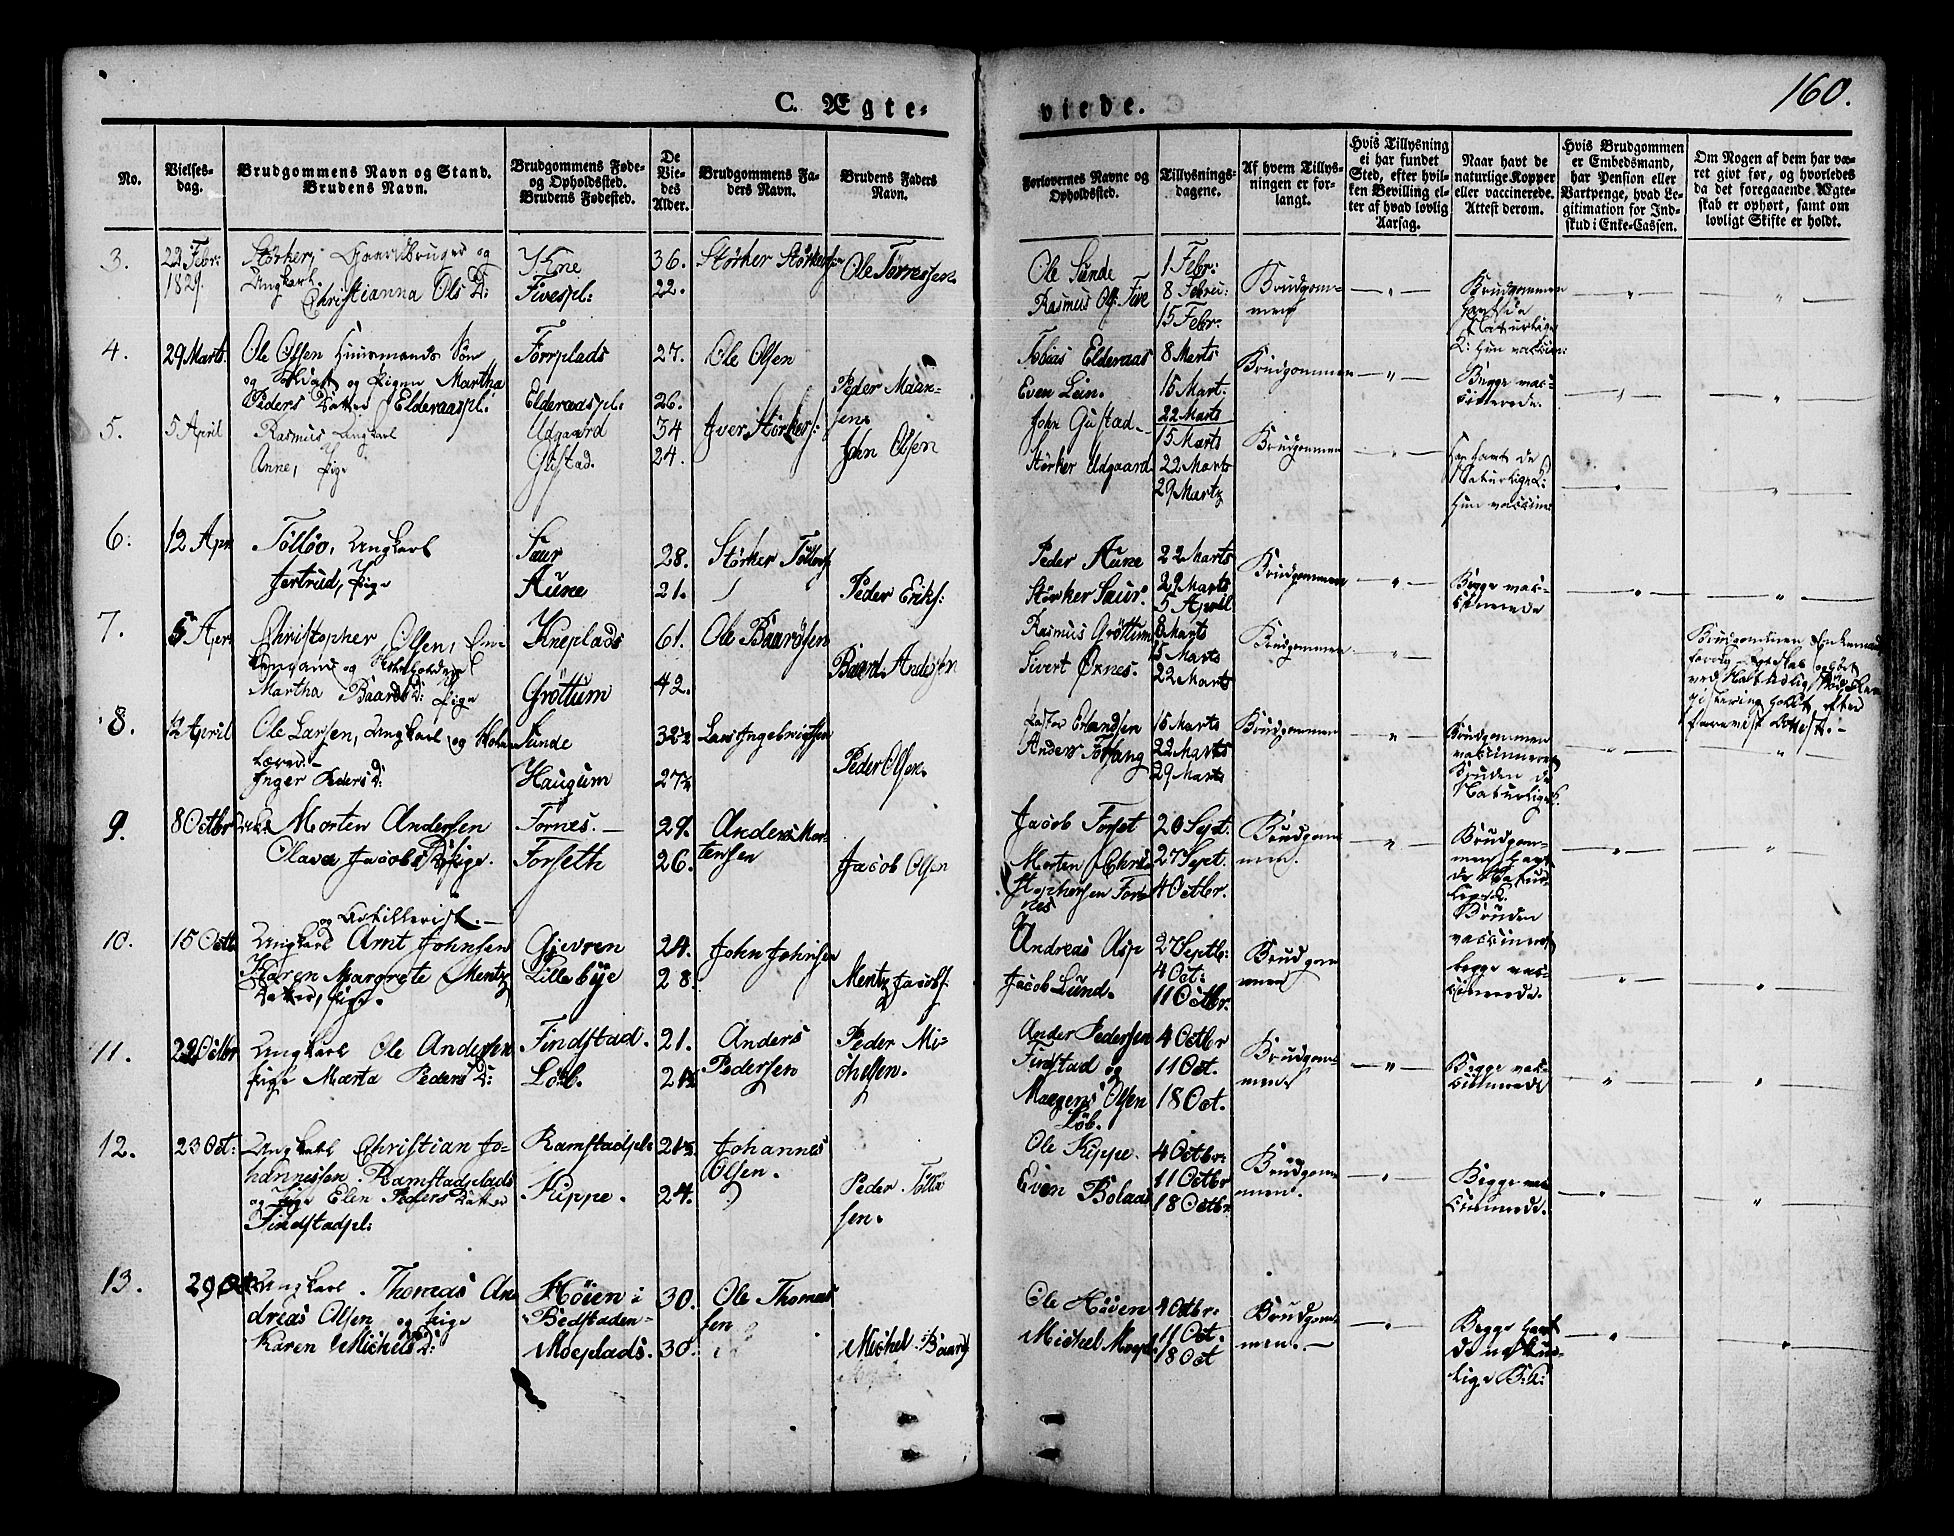 160.
C. Ægte-
viede.
No.
Vielses-
dag.
Brudgommens Navn og Stand.
Brudens Navn.
Brudgommens Føde-
og Opholdssted.
Brudens Fødested.
De
Vie-
des
Alder.
Brudgommens Fa-
ders Navn.
Brudens Faders
Navn.
Forlovernes Navne og
Opholdssted.
Tillysnings-
dagene.
Af hvem Tillys-
ningen er for-
langt.
Hvis Tillysning
ei har fundet
Sted, efter hvil-
ken Bevilling el-
ler af hvad lovlig
Aarsag.
Naar havt de
naturlige Kopper
eller vaccinerede.
Attest derom.
Hvis Brudgommen
er Embedsmand,
har Pension eller
Vartpenge, hvad Le-
gitimation for Ind-
skud i Enke-Cassen.
Om Nogen af dem har væ-
ret givt før, og hvorledes
da det foregaaende Ægte-
skab er ophørt, samt om
lovligt Skifte er holdt.
3.
22 Febr:
1829.
Størker, og
Ungkarl.
Christianna Ols D:
Fivespl:
36.
22.
Størker Størkersen
Ole Torressen
Ole Sunde
Rasmus Ols. Five
1 Febr:
8 Febru:
15 Febr:
Brudgom-
men
Brudgommen
Naturlige
K: Hun vaccin:
4.
29 Marts.
Ole Olsen Huusmands Søn
og Soldat og Pigen Martha
Peders Datter Elderaaspl.
Forrplads
Elderaaspl.
27.
26.
Ole Olsen
Peder Maan-
sen
Tobias Elderaas
Even Lein.
8 Marts
15 Mart.
22 Marts
Brudgommen
Begge vac-
cinerede.
5.
5 April
Rasmus Ungkarl
Anne, Pige
Udgaard
Gustad.
34
24.
Iver Størkers:
John Olsen
John Gustad
Størker Udgaard
15 Marts
22 Marts
29 Marts
Brudgommen
Han havt de
Naturlige K:
Hun vaccine
6.
12 Apr
Tolløv, Ungkarl
Jertrud, Pige
Saur
Aune
28.
21.
Størker Tollevs
Peder Eriks:
Peder Aune
Størker Saur.
22 Marts
29 Marts
5 April
Brudgommen
Begge vac-
cinerede
7.
5 Apr
Christopher Olsen, En-
kemand og
Martha Baards D: Pige
Kneplads
Grøttum
61.
42.
Ole Baardsen
Baard Andersen
Rasmus Grøttum
Sivert Øxnes.
8 Marts
15 Marts
22 Marts
Brudgommen
Brudgommen Enkemand
forrig Ægteskab ophørt
ved
holdt, efter
foreviist Attest. -
8.
12 April
Ole Larsen, Ungkarl og Skole
Lærer. -
Inger Peders D:
Sunde
Haugum
32½
27½
Lars Ingebrigtsen
Peder Olsen.
Erlandsen
Anders Forfang
15 Marts
22 Marts
29 Marts
Brudgommen
Brudgommen
vaccineret
Bruden de
Naturlige K.
9.
8 Octbr
Morten Andersen
Olava Jacobs D: Pige.
Fornes. -
Forseth
29.
26.
Anders Mor-
tensen
Jacob Olsen
Jacob Forset
Morten Chris-
stophersen For-
nes
20 Sept.
27 Sept.
4 Octbr.
Brudgom-
men.
Brudgom-
men havt
de Natur-
lige K.
Bruden
vaccineret
10.
15 Octb
og Artillerist. -
Ungkarl Arnt Johnsen
Karen Margrete Mentz
Datter, Pige.
Gjevren
Lillebye
24.
28.
John Johnsen
Mentz Jacobs.
Andreas Asp
Jacob Lund.
27 Septb:
4 Oct:
11 Octbr.
Brudgom
men
begge vac-
cinerede.
11.
22 Octbr
Ungkarl Ole Andersen
Pige Marta Peders D:
Findstad.
Løb.
21.
21½
Anders
Pedersen
Peder Mi-
chelsen.
Ander Pedersen
Findstad og
Magens Olsen
Løb.
4 Octbr
11 Oct.
18 Oct.
Brudgom-
men
Begge vac-
cinerede
12.
23 Oct:
Ungkarl Christian Jo-
hannessen Ramstadplads
og Pige Elen Peders Datter
Findstadspl:
Ramstadpl:
Kippe.
21½
24.
Johannes
Olsen.
Peder Tollø
sen.
Ole Kippe.
Even Bolaas
4 Octbr:
11 Octbr
18 Octbr.
Brudgom-
men.
Begge vac-
cinerede.
13.
29 Oct
Ungkarl Thomas An
drias Olsen og Pige
Karen Michels D:
Høien i
Bedstaden-
Moeplads.
30.
30.
Ole Thomas
sen
Michel Baards
Ole Høven
Michel Moepl:
4 Octbr:
11 Oct.
18 Oct
Brudgom-
men. -
Begge havt
de natur-
lige B: K: